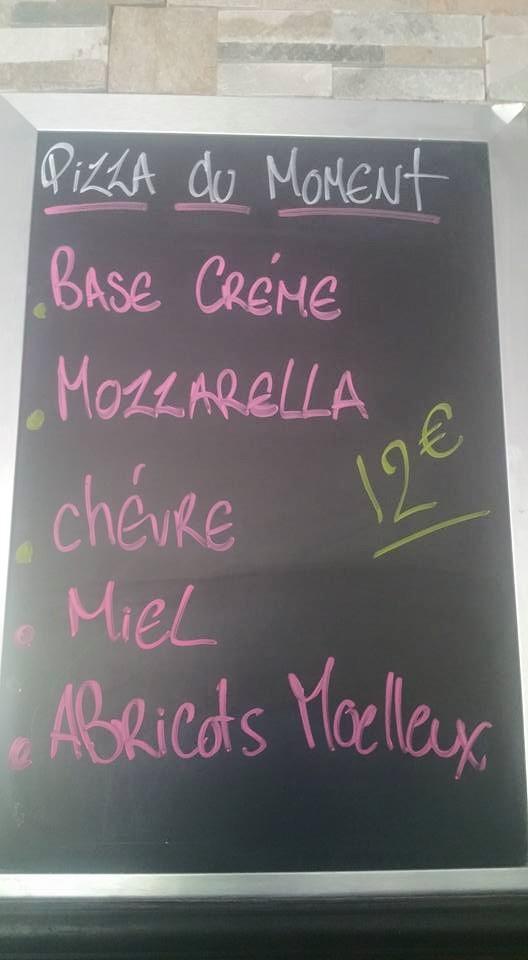 PiZZA du MOMENt
BASE CRÉME
MOZZARELLA
12€
ChÉVRE
MiEL
ABRicots Moelleux